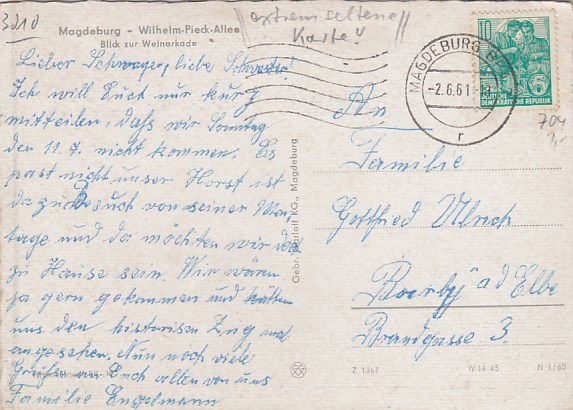 3010
Magdeburg - Wilhelm-Pieck-Allee
Blick zur Weinarkade
extrem seltene
Karte!
Lieber Schwager, liebe Schwester!
Ich will Euch nur kurz
mitteilen, daß wir Sonntag
den 11. 7. nicht kommen. Es
past nicht unser Horst ist
da zu Besuch von seiner Mon
tage und da möchten wir da
zu Hause sein. Wir wären
ja gern gekommen und hätten
uns den historischen Zug mal
angesehen. Nun noch viele
Grüße an Euch allen von uns
Familie Engelmann
Gebr. Garloff KG., Magdeburg
MAGDEBURG
-2.6.61
r
10
5
DEUTSCHE
DEMOKRATISCHE REPUBLIK
704
An
Familie
Gottfried Ulrich
Barby a d Elbe
Brandgasse 3.
Z 1367
IV 14 45
N 1/60